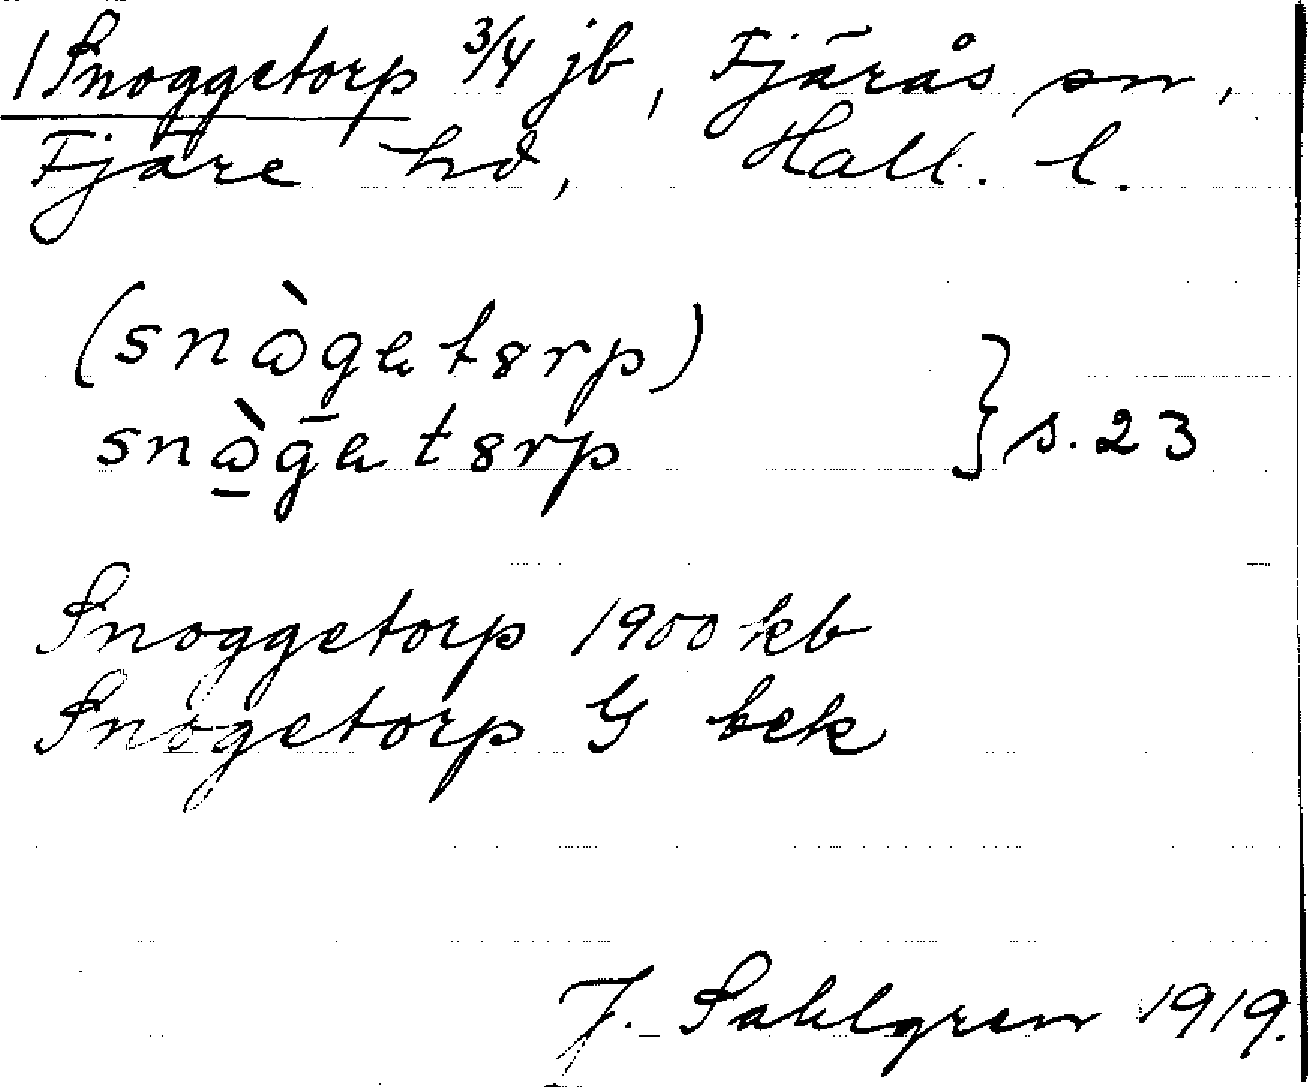 1 Snoggetorp 3/4 jb, Fjärås sn,
Fjäre hd, Hall. l.
(snɷ̀gɐtɞrp)
snɷ̀gɐtɞrp } s. 23
Snoggetorp 1900 kb
Snogetorp G bek
J. Sahlgren 1919.